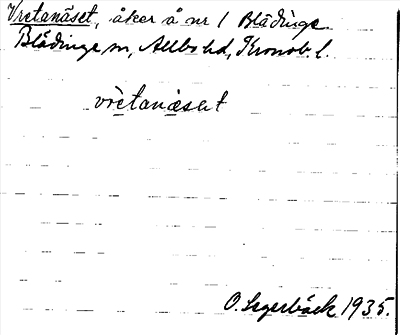 Vretanäset, åker å nr 1 Blädinge
Blädinge sn, Allbo hd, Kronob. l.
vrètanäsèt
O. Segerbäck 1935.